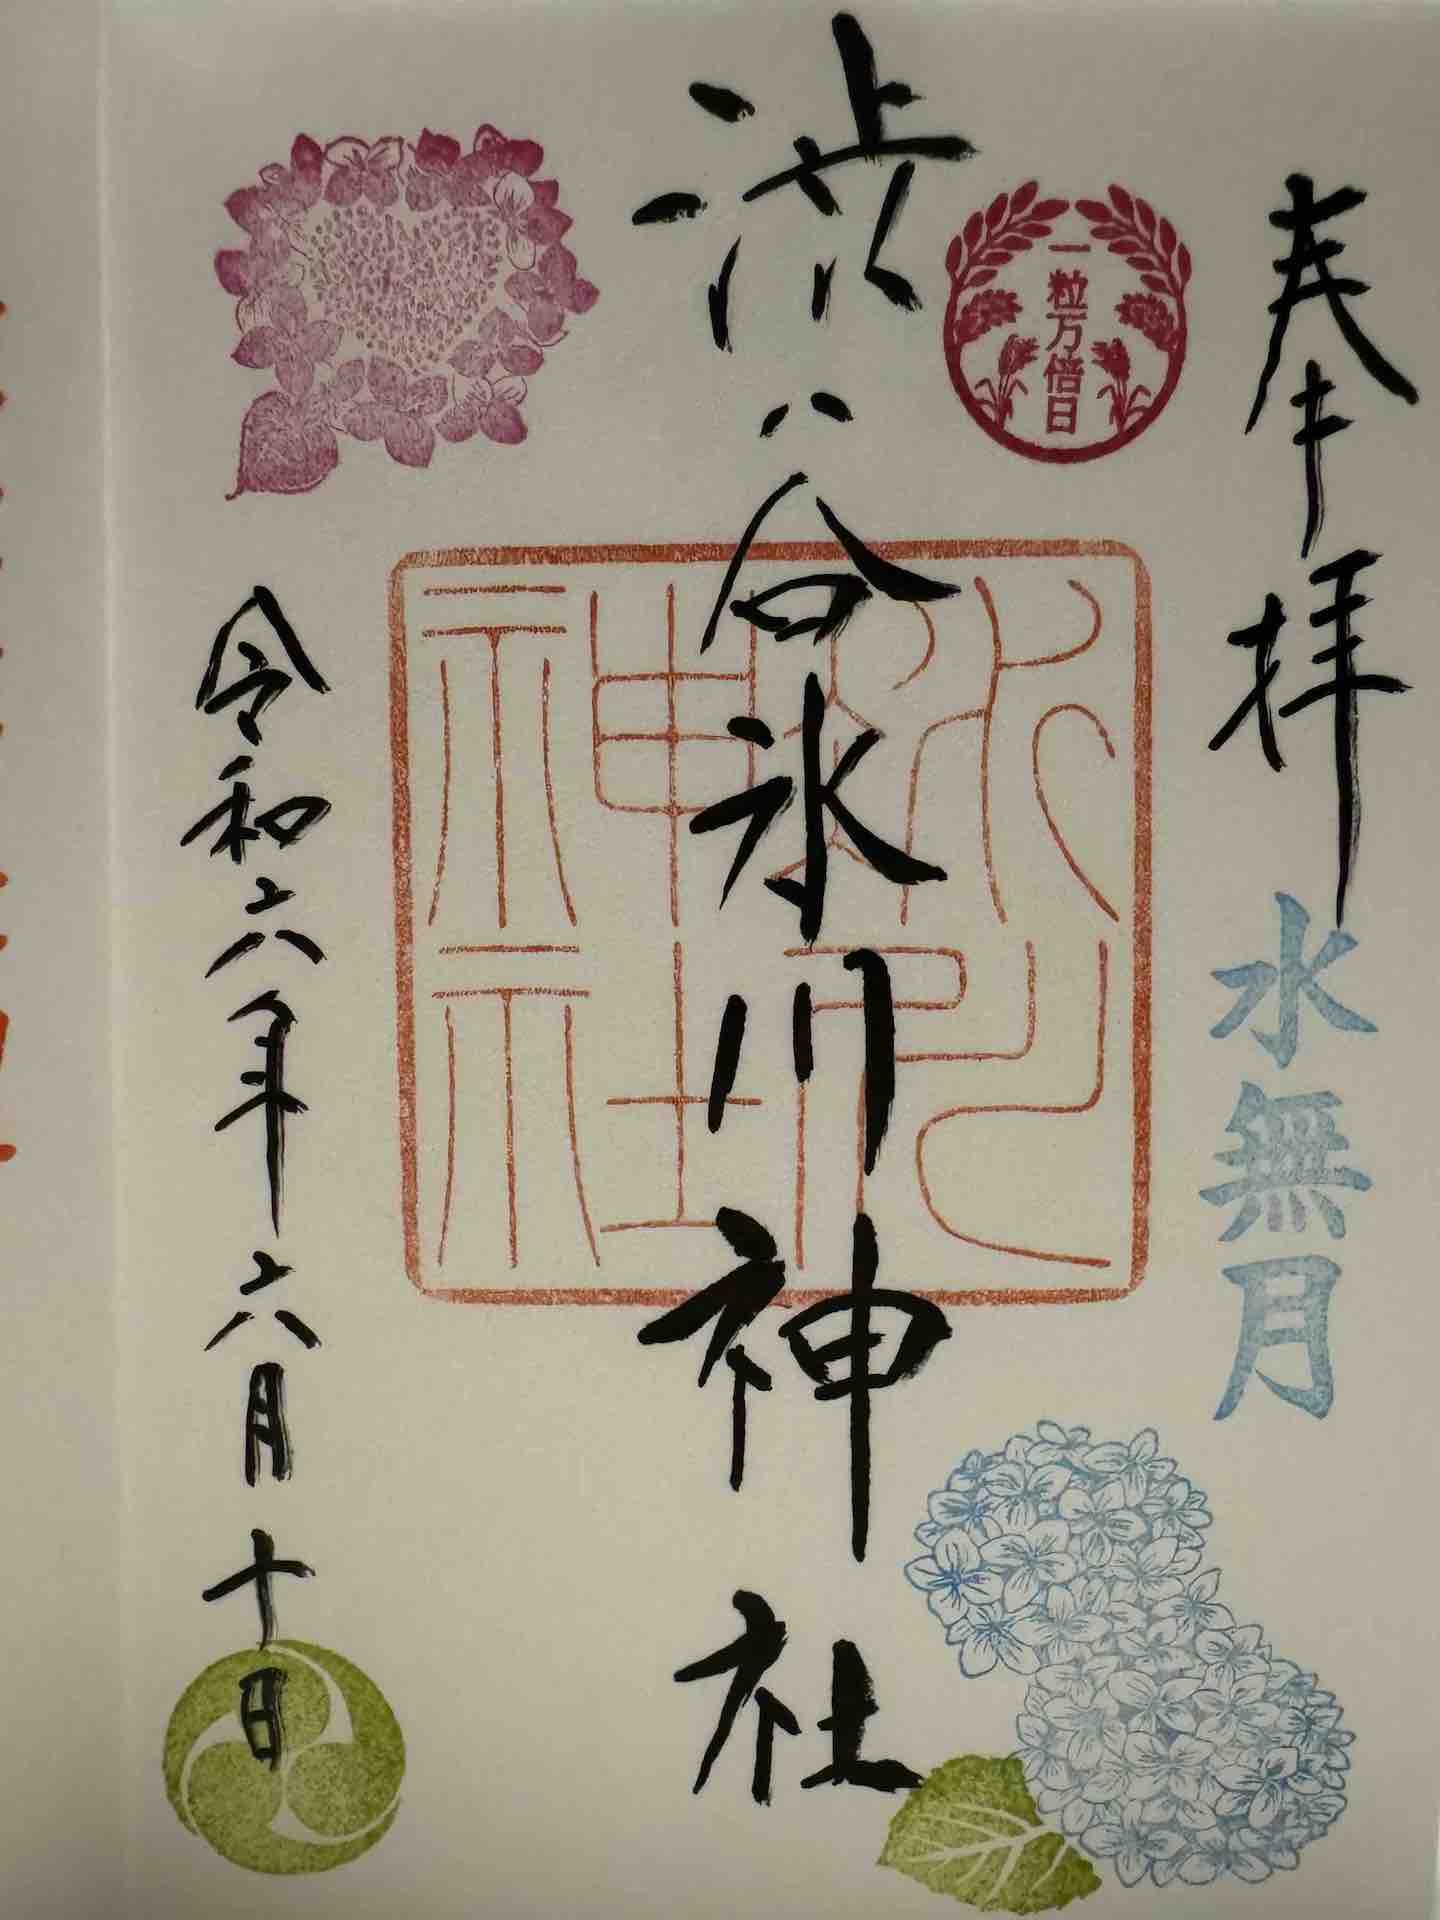 奉拝
水無月
一粒万倍日
渋谷氷川神社
氷川神社
令和六年六月十日